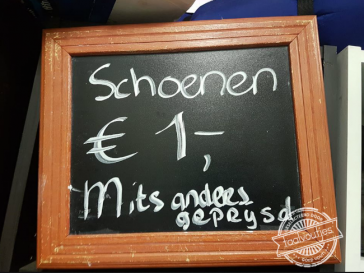 Schoenen
€ 1,-
Mits anders
gepeysd
taalvoutjes